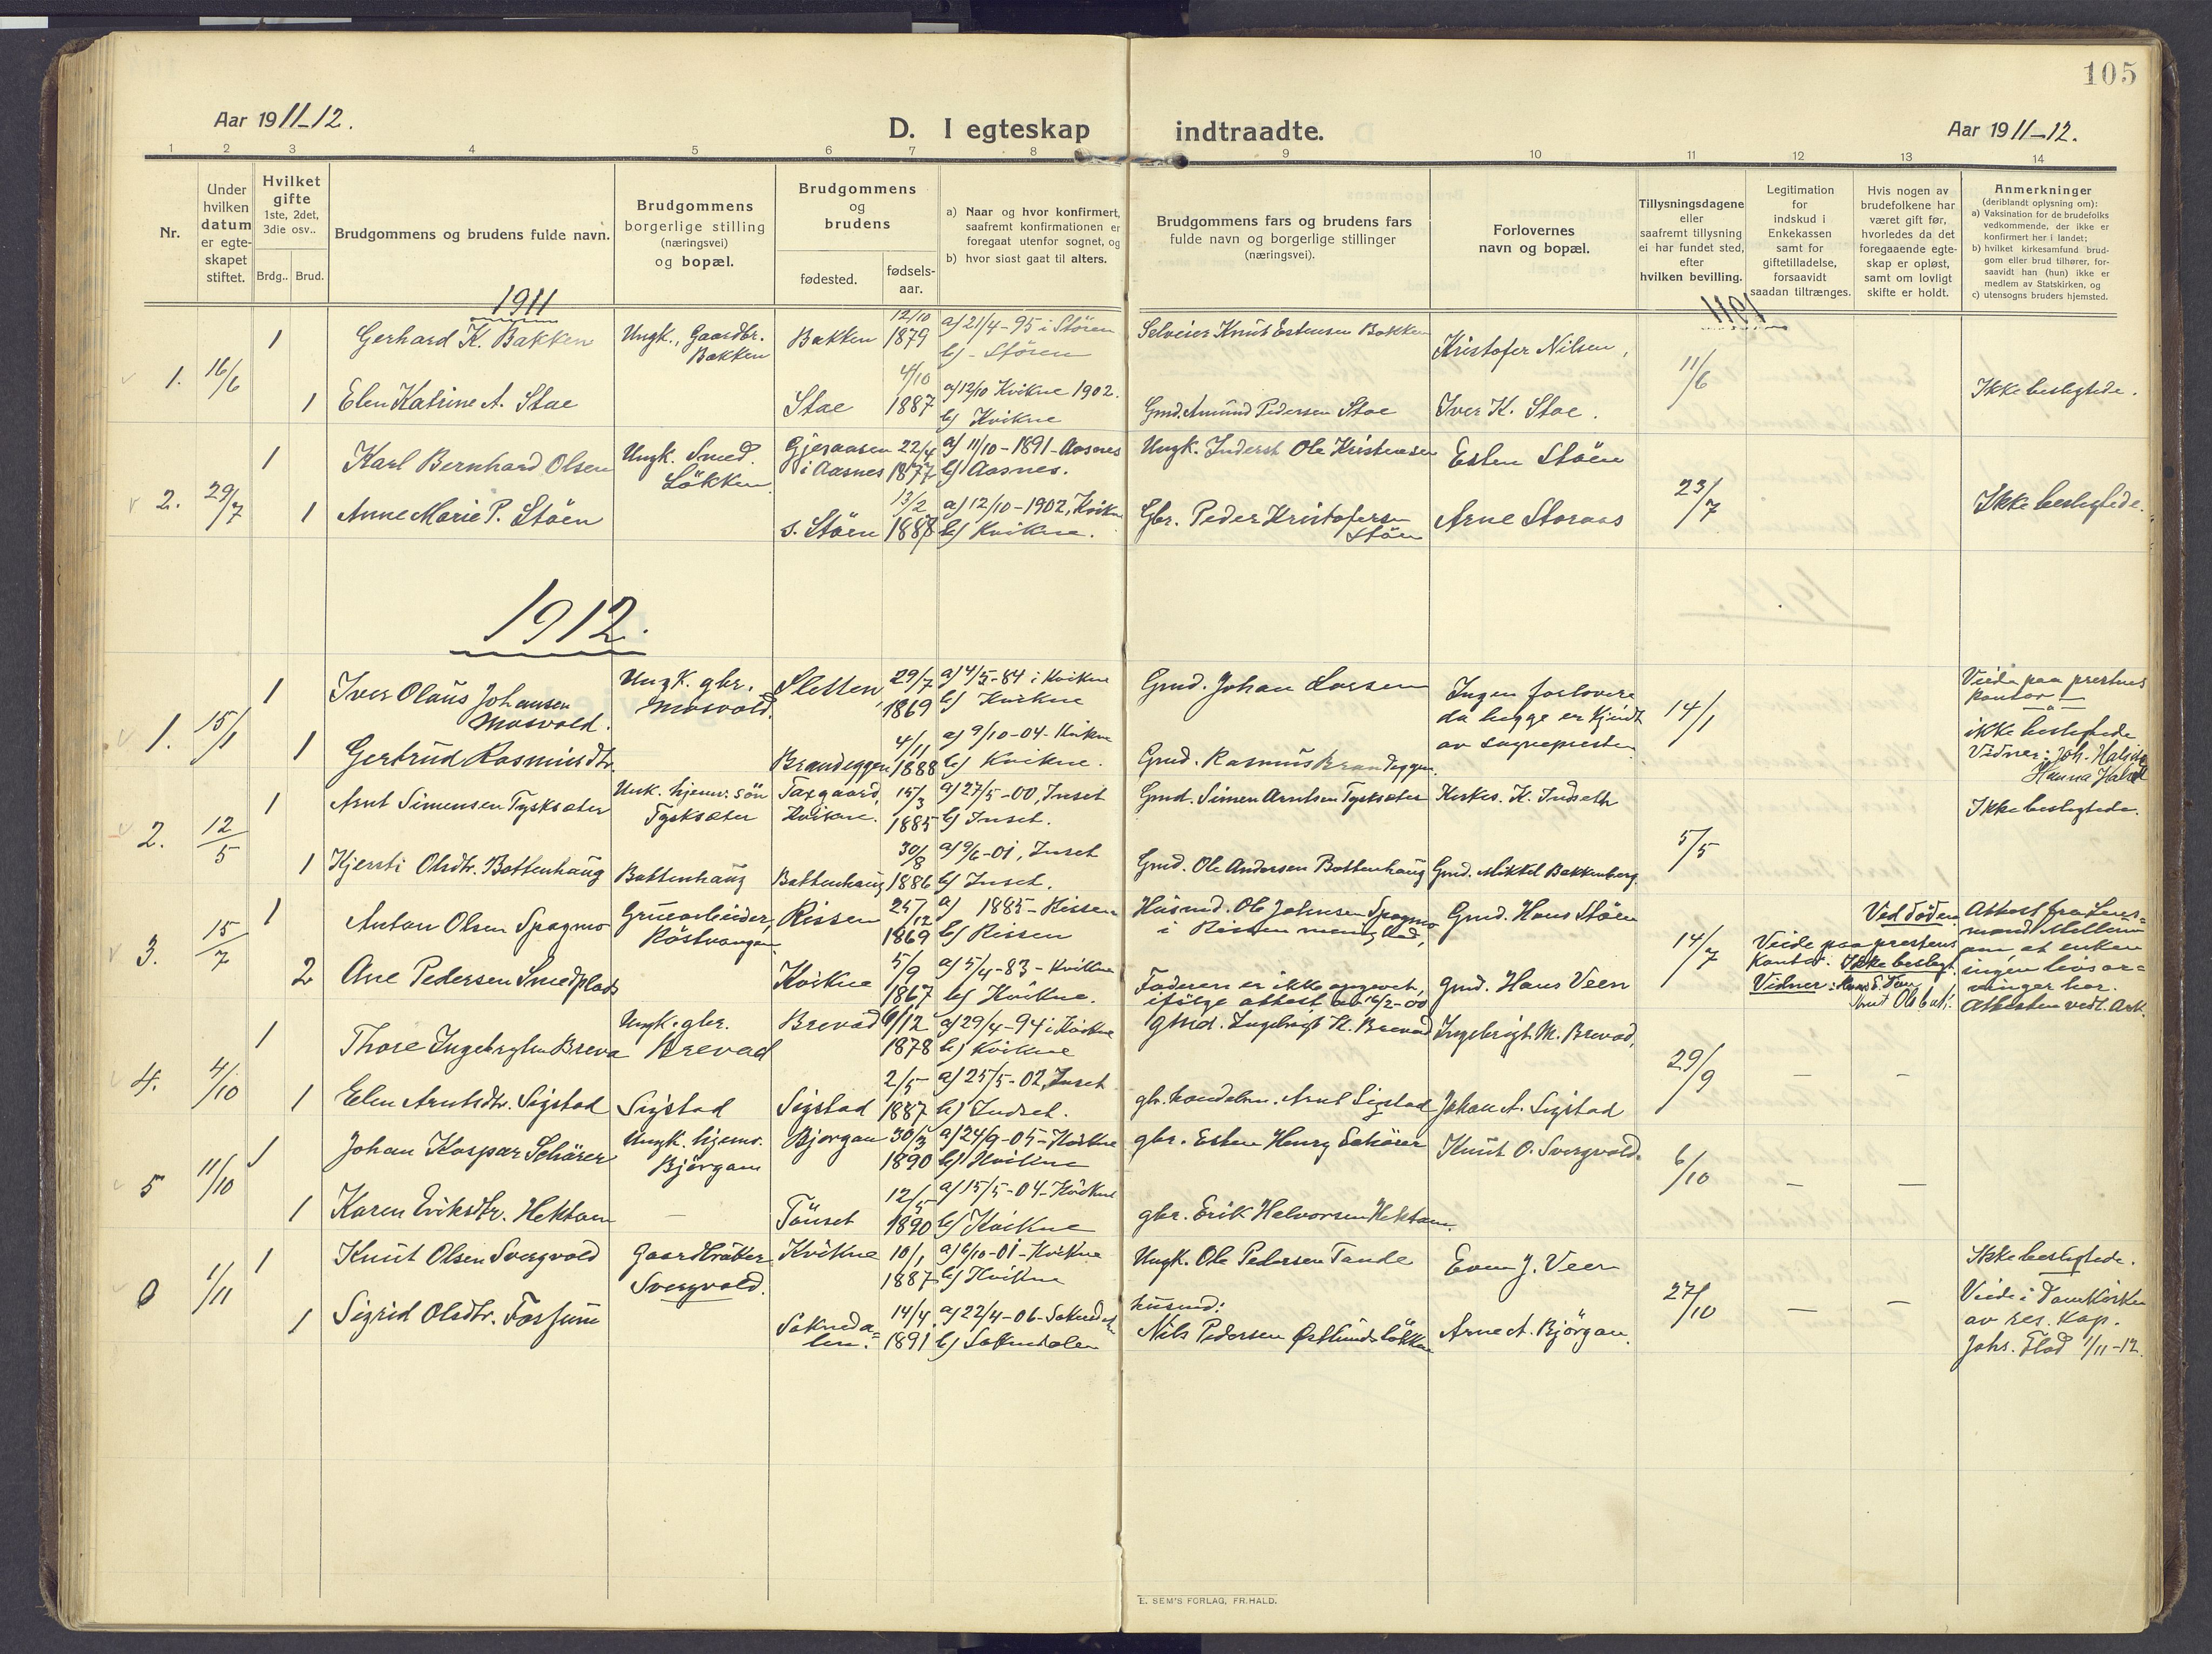 105
Aar 1911-12.
D. I egteskap indtraadte.
Aar 1911-12.
1 2 3 4 5 6 7 8 9 10 11 12 13 14
Nr.
Under hvilken datum er egteskapet stiftet.
Hvilket gifte 1ste, 2det, 3die osv..
Brdg.. Brud.
Brudgommens og brudens fulde navn.
Brudgommens borgerlige stilling (næringsvei) og bopæl.
Brudgommens og brudens
fødested.
fødsels-aar.
a) Naar og hvor konfirmert, saafremt konfirmationen er foregaat utenfor sognet, og
b) hvor sidst gaat til alters.
Brudgommens fars og brudens fars fulde navn og borgerlige stillinger (næringsvei).
Forlovernes navn og bopæl.
Tillysningsdagene eller saafremt tillysning ei har fundet sted, efter hvilken bevilling.
Legitimation for indskud i Enkekassen samt for giftetilladelse, forsaavidt saadan tiltrænges.
Hvis nogen av brudefolkene har været gift før, hvorledes da det foregaaende egteskap er opløst, samt om lovligt skifte er holdt.
Anmerkninger (deriblandt oplysning om):
a) Vaksination for de brudefolks vedkommende, der ikke er konfirmert her i landet;
b) hvilket kirkesamfund brudgom eller brud tilhører, forsaavidt han (hun) ikke er medlem av Statskirken, og
c) utensogns bruders hjemsted.
1911
1911
1. 16/6 1 Gerhard K. Bakken Ungk., Gaardbr. Bakken Bakken 12/10 1879 a) 21/4-95 i Stören b) - Stören Selveier Knut Estensen Bakken Kristofer Nilsen, 11/6
1 Elen Katrine A. Stae Stae 4/10 1887 a) 12/10 Kvikne 1902. b) Kvikne Gmd. Amund Pedersen Stae Iver K. Stae. Ikke beslegtede.
2. 29/7 1 Karl Bernhard Olsen Ungk. Smed. Løkken Gjesaasen i Aasnes 22/4 1877 a) 11/10-1891-Aasnes b) Aasnes. Ungk. Inderst Ole Kristensen Esten Stöen 23/7
1 Anne Marie P. Stöen s. Stöen 13/2 1888 a) 12/10-1902, Kvikne b) Kvikne. Gbr. Peder Kristofersen Stöen Arne Storaas Ikke beslegtede.
1912.
1. 15/1 1 Iver Olaus Johansen Mosvold. Ungk. gbr. Mosvold. Sletten, 29/7 1869 a) 4/5-84 i Kvikne b) Kvikne Gmd. Johan Larsen Ingen forlovere da begge er kjendt av sognepresten 14/1 Viede paa prestens kontor
1 Gertrud Rasmusdtr. Brandeggen 4/11 1888 a) 9/10-04-Kvikne b) Kvikne. Gmd. Rasmus Brandeggen. ikke beslegtede Vidner: Joh. Hanna
2. 12/5 1 Arnt Simensen Tysksæter Unk. hjemv. sön Tysksæter Taxgaard, Kvikne. 15/3 1885 a) 27/5-00, Inset b) Inset. Gmd. Simen Arntsen Tysksæter Kirkes. K. Indseth 5/5 Ikke beslegtede.
1 Kjersti Olsdtr. Bottenhaug Bottenhaug Bottenhaug 30/8 1886 a) 9/6-01, Inset b) Inset. Gmd. Ole Andersen Bottenhaug Gmd. Mikkel Bakkenberg.
3. 15/7 1 Anton Olsen Spagmo Gruearbeider, Röstvangen Rissen 25/12 1869 a) 1885-Rissen b) Rissen Husmd. Ole Johnsen Spagmo i Rissen Gmd. Hans Stöen 14/7 Viede paa prestens kontor. Ikke beslegt. Vidner: Ved döden Attest fra Lensmand om at enken ingen livsarvinger har. Attesten vedl.
2 Ane Pedersen Smedplads Kvikne 5/9 1867 a) 5/4-83-Kvikne b) Kvikne. Faderen er ikke opgivet, ifölge attest av 16/2-00 Gmd. Hans Veen
4. 4/10 1 Thore Ingebrigtsen Brevad Ungk. gbr. Brevad Brevad 6/12 1878 a) 29/4-94 i Kvikne b) Kvikne Gmd. Ingebrigt K. Brevad Ingebrigt M. Brevad. 29/9 — —
1 Elen Arntsdtr. Sigstad Sigstad Sigstad 2/5 1887 a) 25/5-02, Inset b) Indset. gbr. Arnt Sigstad Johan A. Sigstad
5 11/10 1 Johan Kaspar Schärer Ungk. hjemv. Björgan Bjorgan 30/3 1890 a) 24/9-05-Kvikne b) Kvikne gbr. Esten Henry Schärer Knut O. Svergvold. 6/10 — —
1 Karen Eriksdtr. Hektoen — Tönset 12/5 1890 a) 15/5-04-Kvikne b) Kvikne gbr. Erik Halvorsen Hektoen.
6 1/11 1 Knut Olsen Svergvold Gaardbruker Svergvold. Kvikne 10/1 1887 a) 6/10-01-Kvikne b) Kvikne Ungk. Ole Pedersen Tande Even J. Veen 27/10 — — Ikke beslegtede.
1 Sigrid Olsdtr. Fossum Soknedalen. 14/4 1891 a) 22/4-06-Soknedalen b) Soknedalen husmd: Nils Pedersen Östlundsløkken Arne A. Björgan. Viede i Domkirken av res. kap. Johs. Flod 1/11-12.
E. SEM'S FORLAG, FR.HALD.